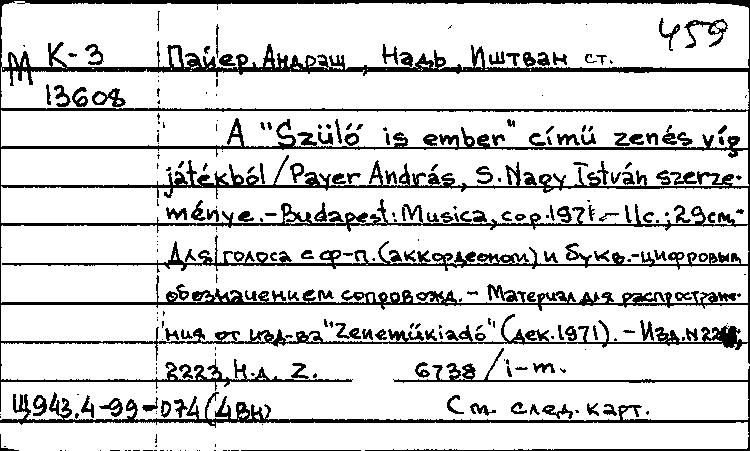 459
М К-3 Пайер, Андраш, Надь, Иштван ст.
13608
A "Szülő is ember" című zenés víg
játékból / Payer András, S. Nagy István szerze-
ménye. - Budapest: Musica, cop. 1971. - 11с.; 29см. -
Для голоса с ф-п. (аккордеоном) и букв.-цифровым
обозначением сопровожд. - Материал для распростране-
ния от изд-ва "Zeneműkiadó" (дек. 1971). - Изд. N
2223, Н.д. Z. 6738 / i-m.
Щ943.4-99-074(4Вн) См. след. карт.